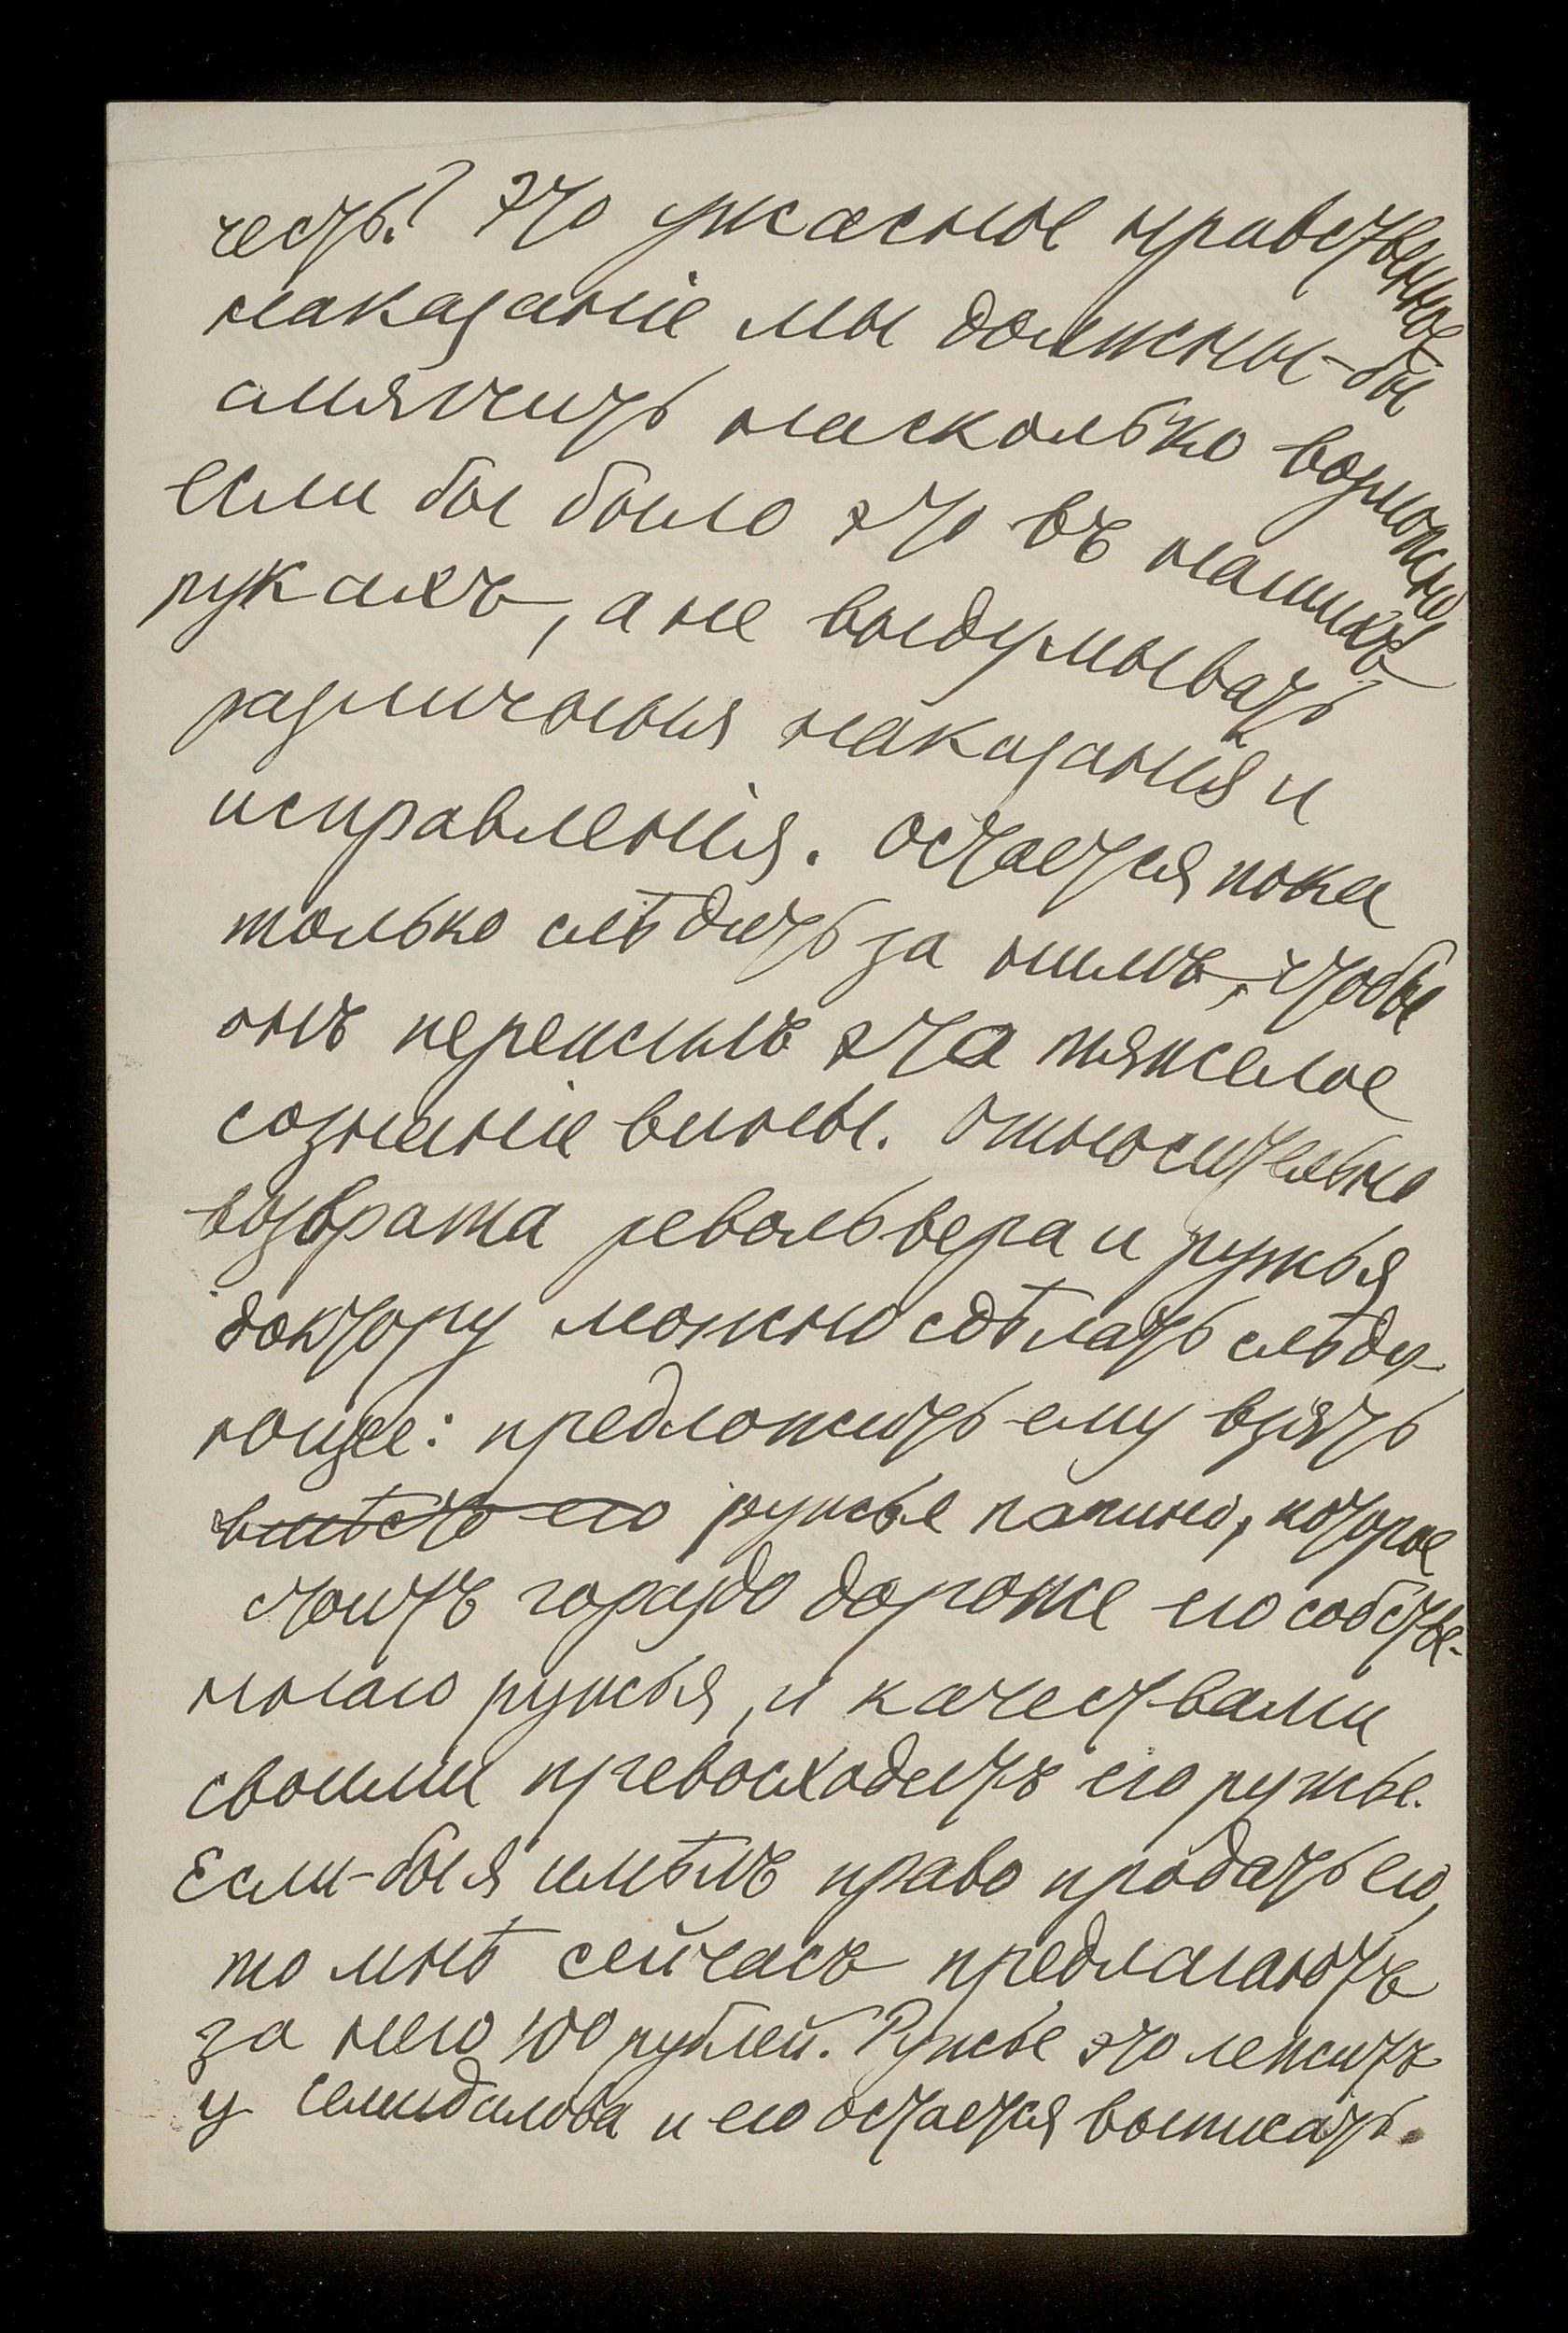 честь? Это ужасное нравственное
наказаніе мы должны-бы
смягчить насколько возможно,
если бы было это въ нашихъ
рукахъ, а не выдумывать
различныя наказанія и
исправленія. Остается пока
только слѣдить за нимъ, чтобы
онъ пережилъ это тяжелое
сознаніе вины. Относительно
возврата револьвера и ружья
доктору можно сдѣлать слѣду-
ющее: предложить ему взять
вмѣсто его ружье папино, которое
стоитъ гораздо дороже его собстве-
ннаго ружья, и качествами
своими превосходитъ его ружье.
Если-бы я имѣлъ право продать его,
то мнѣ сейчасъ предлагаютъ
за него 100 рублей. Ружье это лежитъ
у Селиидалова и его остается выписать.